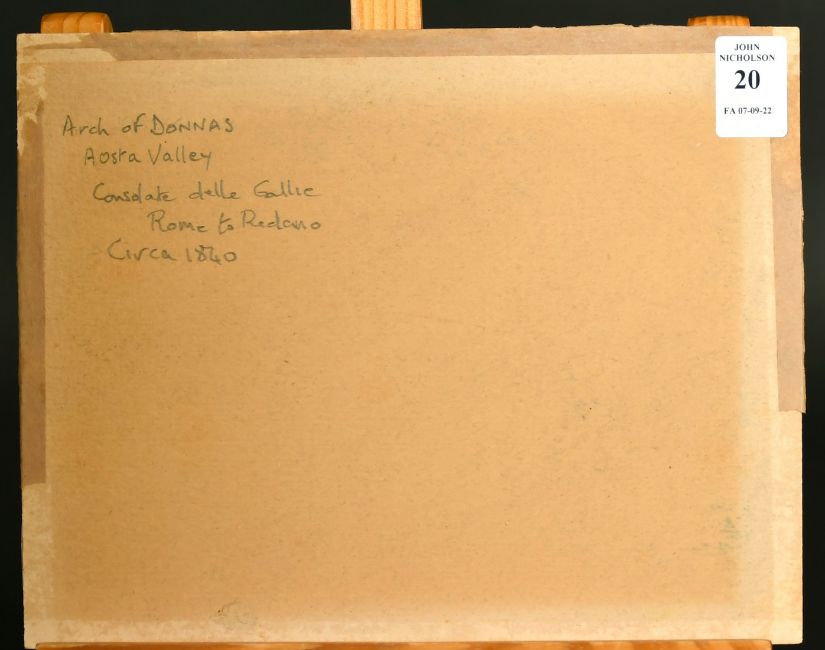 Arch of DONNAS
Aosta Valley
Consolate delle Gallie
Rome to Redano
Circa 1840
JOHN
NICHOLSON
20
FA 07-09-22